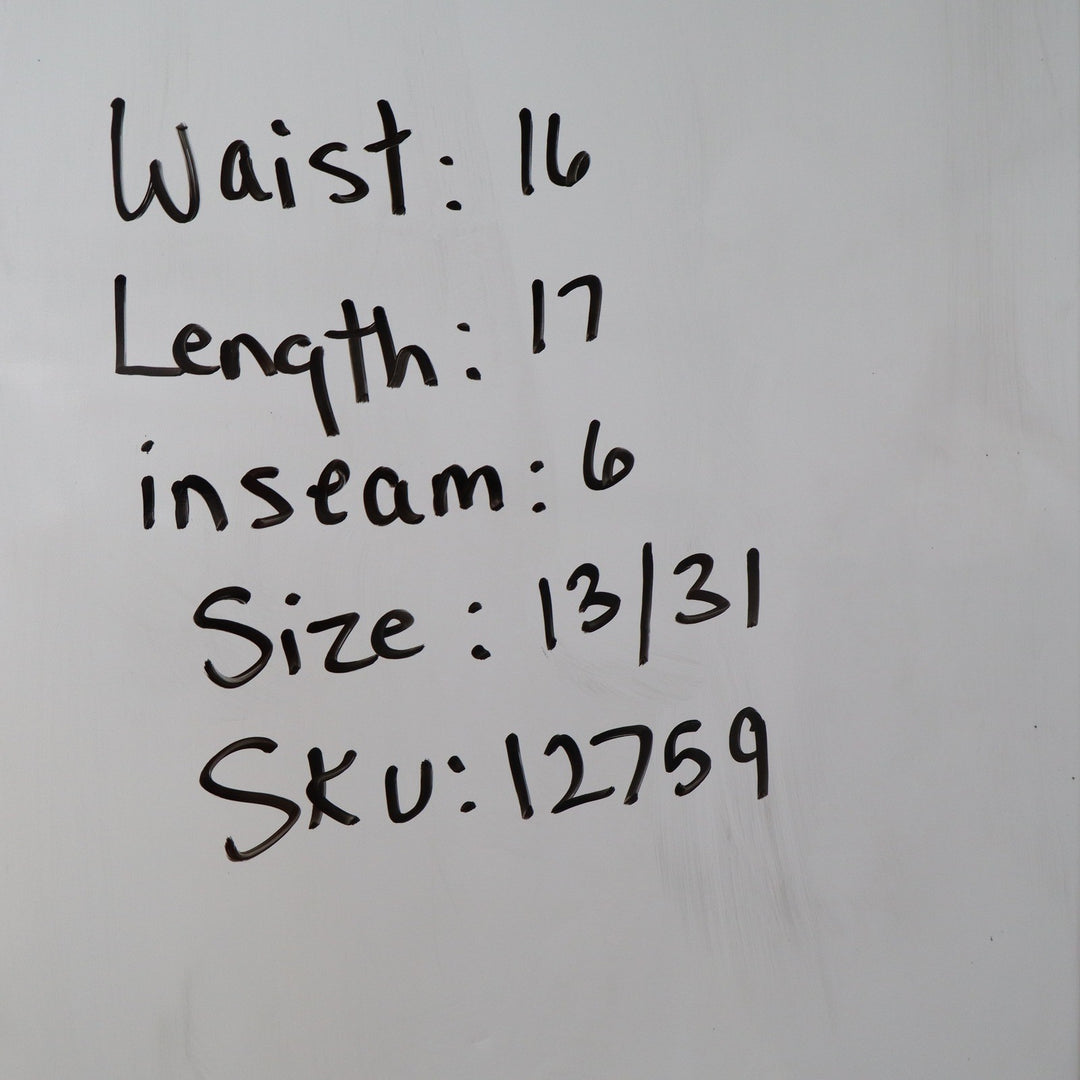 Waist: 16
Length: 17
inseam: 6
Size: 13/31
SKU: 12759